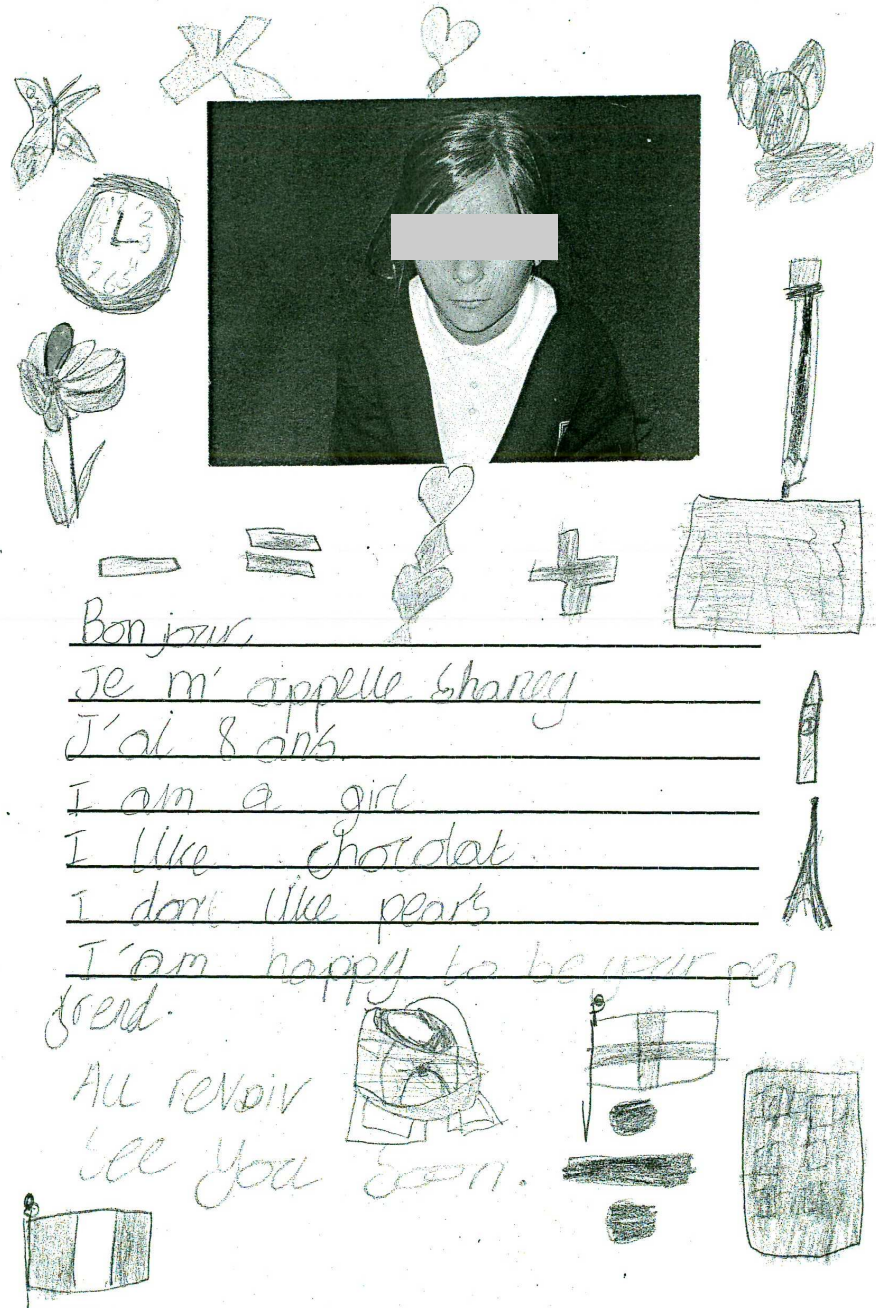 Bonjour,
Je m' appelle Sharey
J'ai 8 ans.
I am a girl.
I like chocolat.
I don't like pears
I'am happy to be your pen
frend.
Au revoir
See you soon.